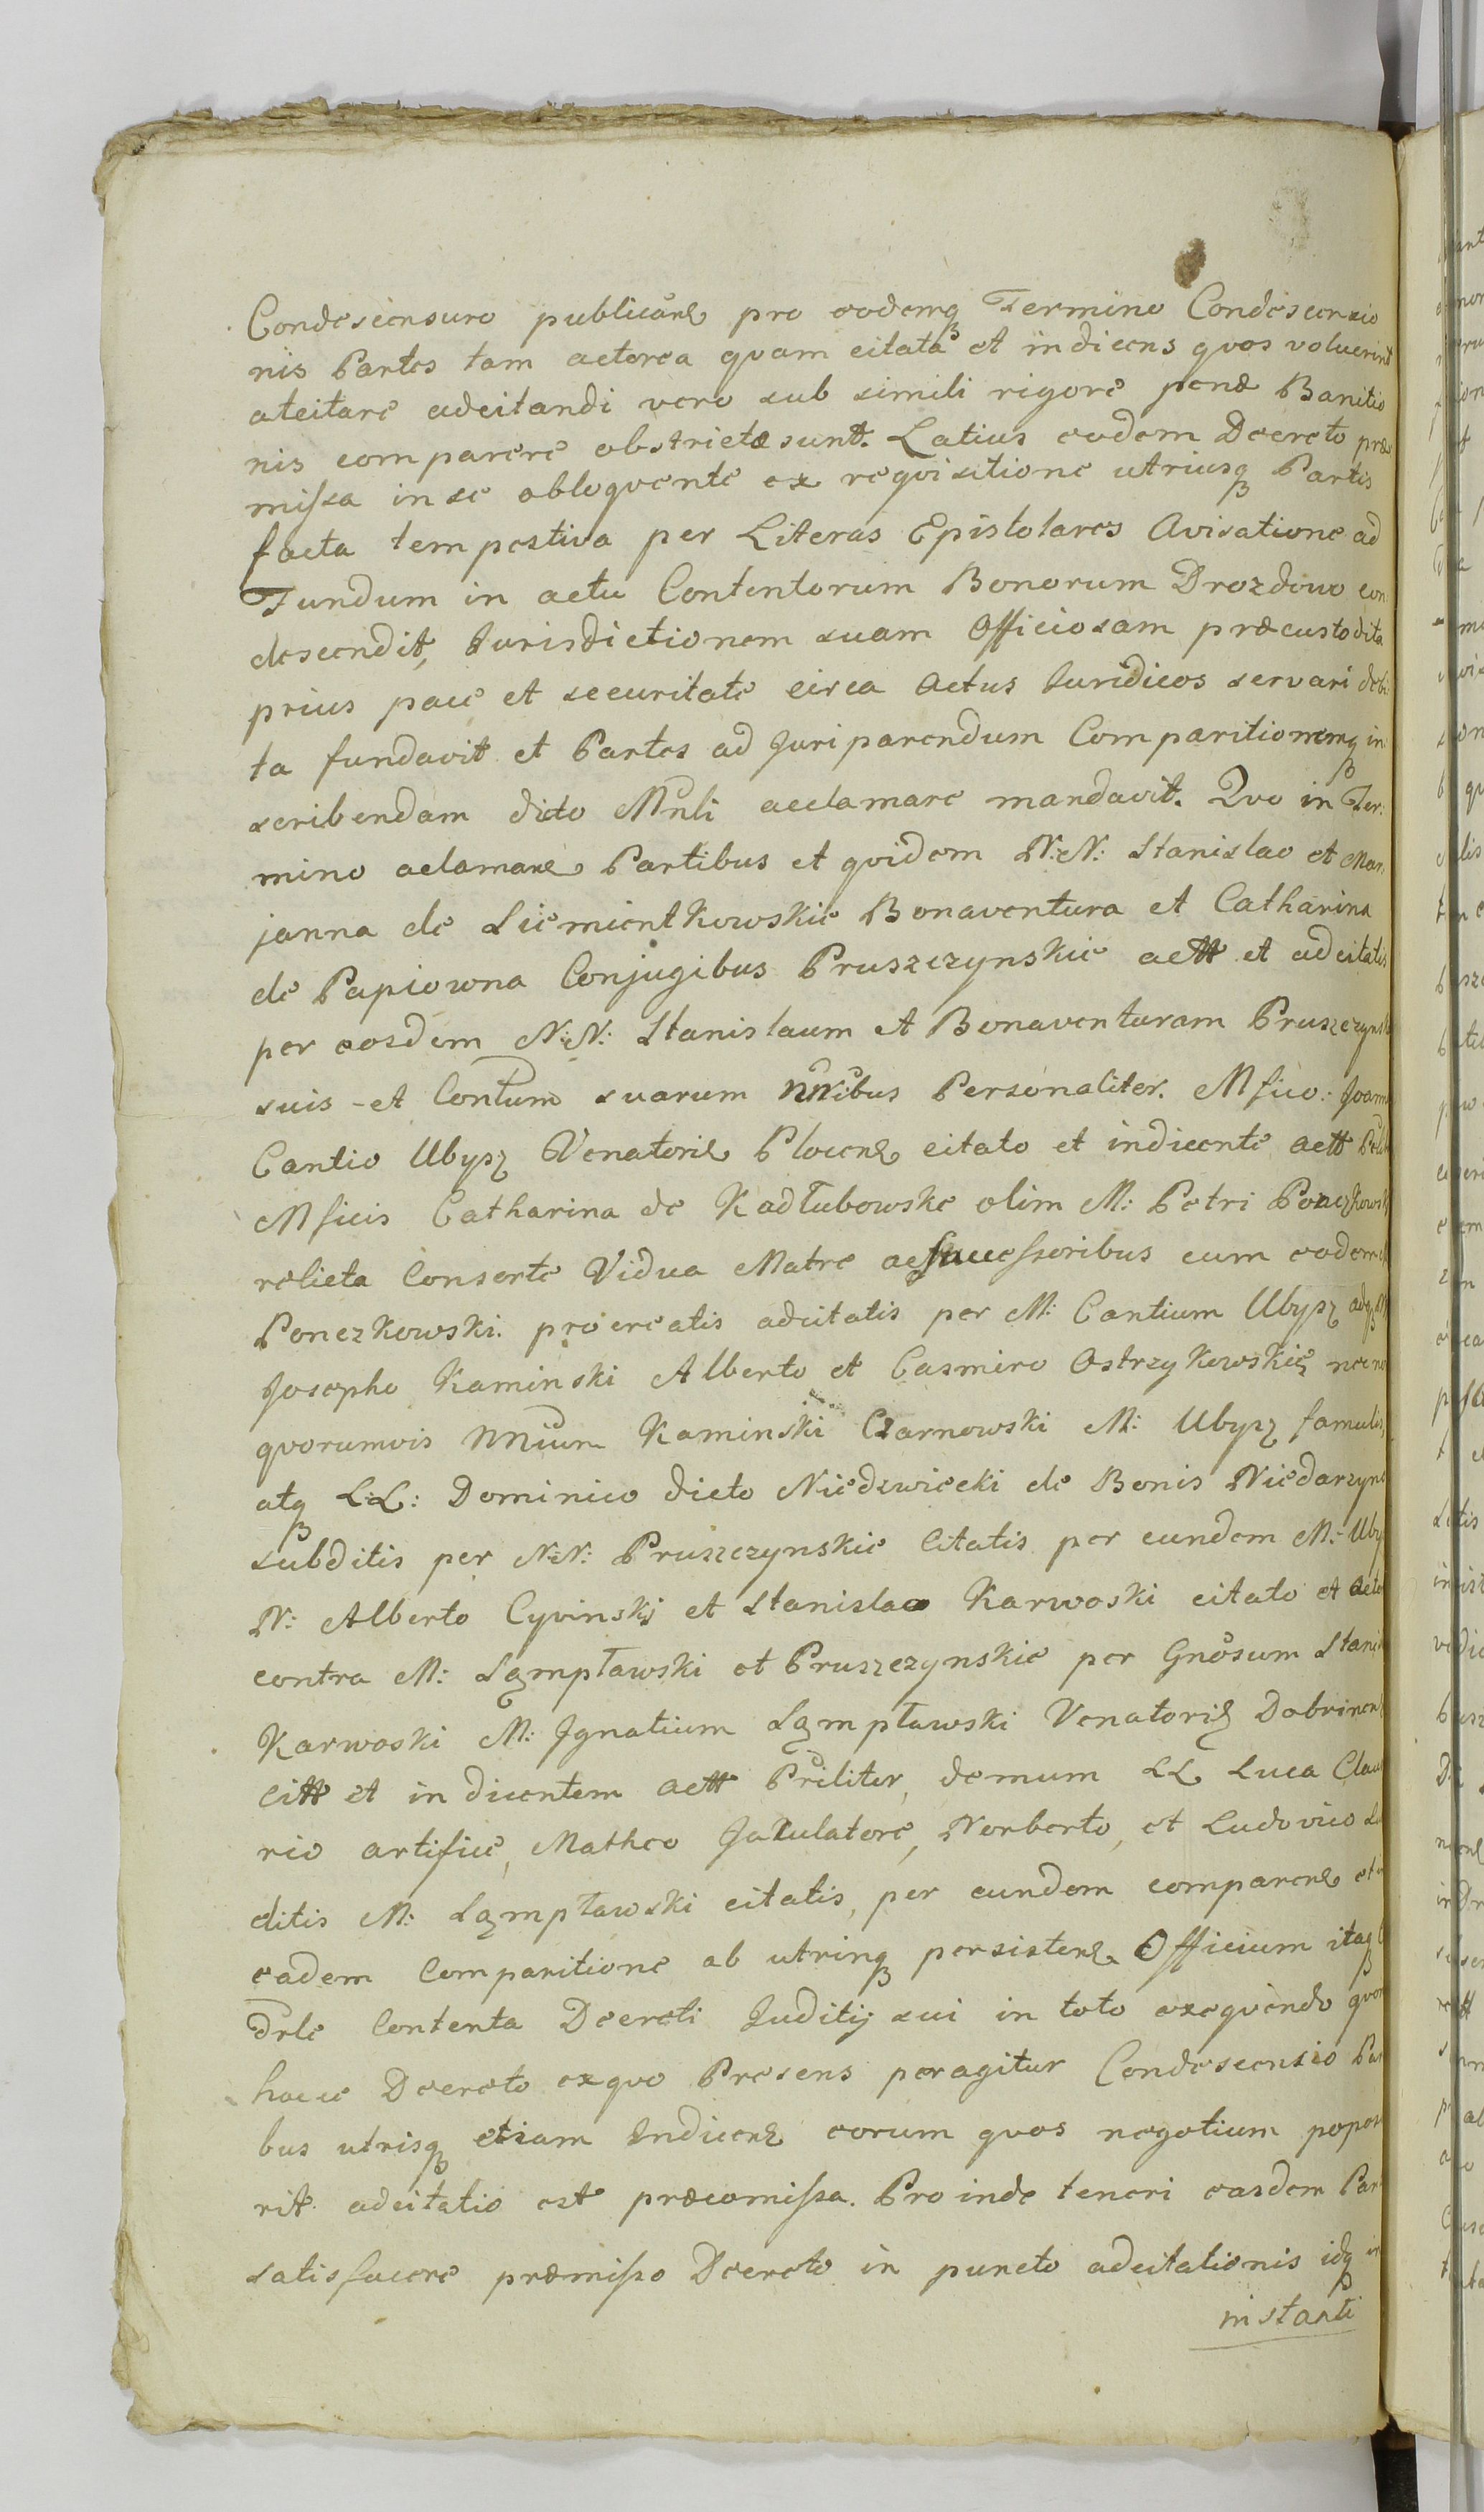 Condescensuro publicare pro eodemq Termino Condescensio
nis Partes tam actorea quam citata et indicens quos voluerint
atcitare adcitandi vero sub simili rigore penæ Banitio
nis comparere obstrictæ sunt. Latius eodem Decreto præ
missa in se obloquente ex requisitione utriusq Partis
facta tempestiva per Literas Epistolares Avisatione ad
Fundum in actu Contentorum Bonorum Drozdowo con
descendit, Jurisdictionem suam Officiosam præcustodita
prius pace et securitate circa Actus Juridicos servari debi
ta fundavit et Partes ad Juri parendum Comparitionemq in
scribendam dicto Mnli acclamare mandavit. Quo in Ter:
mino aclamare Partibus et quidem N:N: Stanislao et Mar
janna de Siemientkowskie Bonaventura et Catharina
de Papiowna Conjugibus Pruszczynskie actt et adcitatis
per eosdem N:N: Stanislaum et Bonaventuram Pruszczynsk
suis et Contum suarum nnibus Personaliter. Mfico: Joann
Cantio Ubysz Venatoris Plocens citato et indicente actt
Mficis Catharina de Kadłubowske olim M: Petri Ponczkowsk
relicta Consorte Vidua Matre ac Successoribus cum eodem
Ponczkowski. procreatis adcitatis per M: Cantium Ubysz adq
Josepho Kaminski Alberto et Casmiro Ostrzykowskie necno
quorumvis nnium Kaminski Czarnowski M: Ubysz famulis,
atq L:L: Dominico dicto Niedzwiecki de Bonis Niedarzyn
subditis per N:N: Pruszczynskie Citatis per eundem M: Uby
N: Alberto Cyvinski et Stanislao Karwoski citato et Acto
contra M: Sąmpławski et Pruszczynskie per Gnosum Stanis
Karwoski M: Jgnatium Sąmpławski Venatoris Dobrinens
citt et indicentem actt Prsliter, demum LL Luca Clau
rio artifice, Matheo Jaculatore, Norberto, et Ludovico Su
ditis M: Sąmpławski citatis, per eundem comparens et in
eadem Comparitione ab utrinq persistens. Officium itaq
drle Contenta Decreti Juditij sui in toto exequendo quon
hocce Decreto exquo Presens peragitur Condescensio Par
bus utrisq etiam Indicens eorum quos negotium popos
rit. adcitatio est præcomissa. Pro inde teneri easdem Par
satisfacere præmisso Decreto in puncto adcitationis idq in
instanti